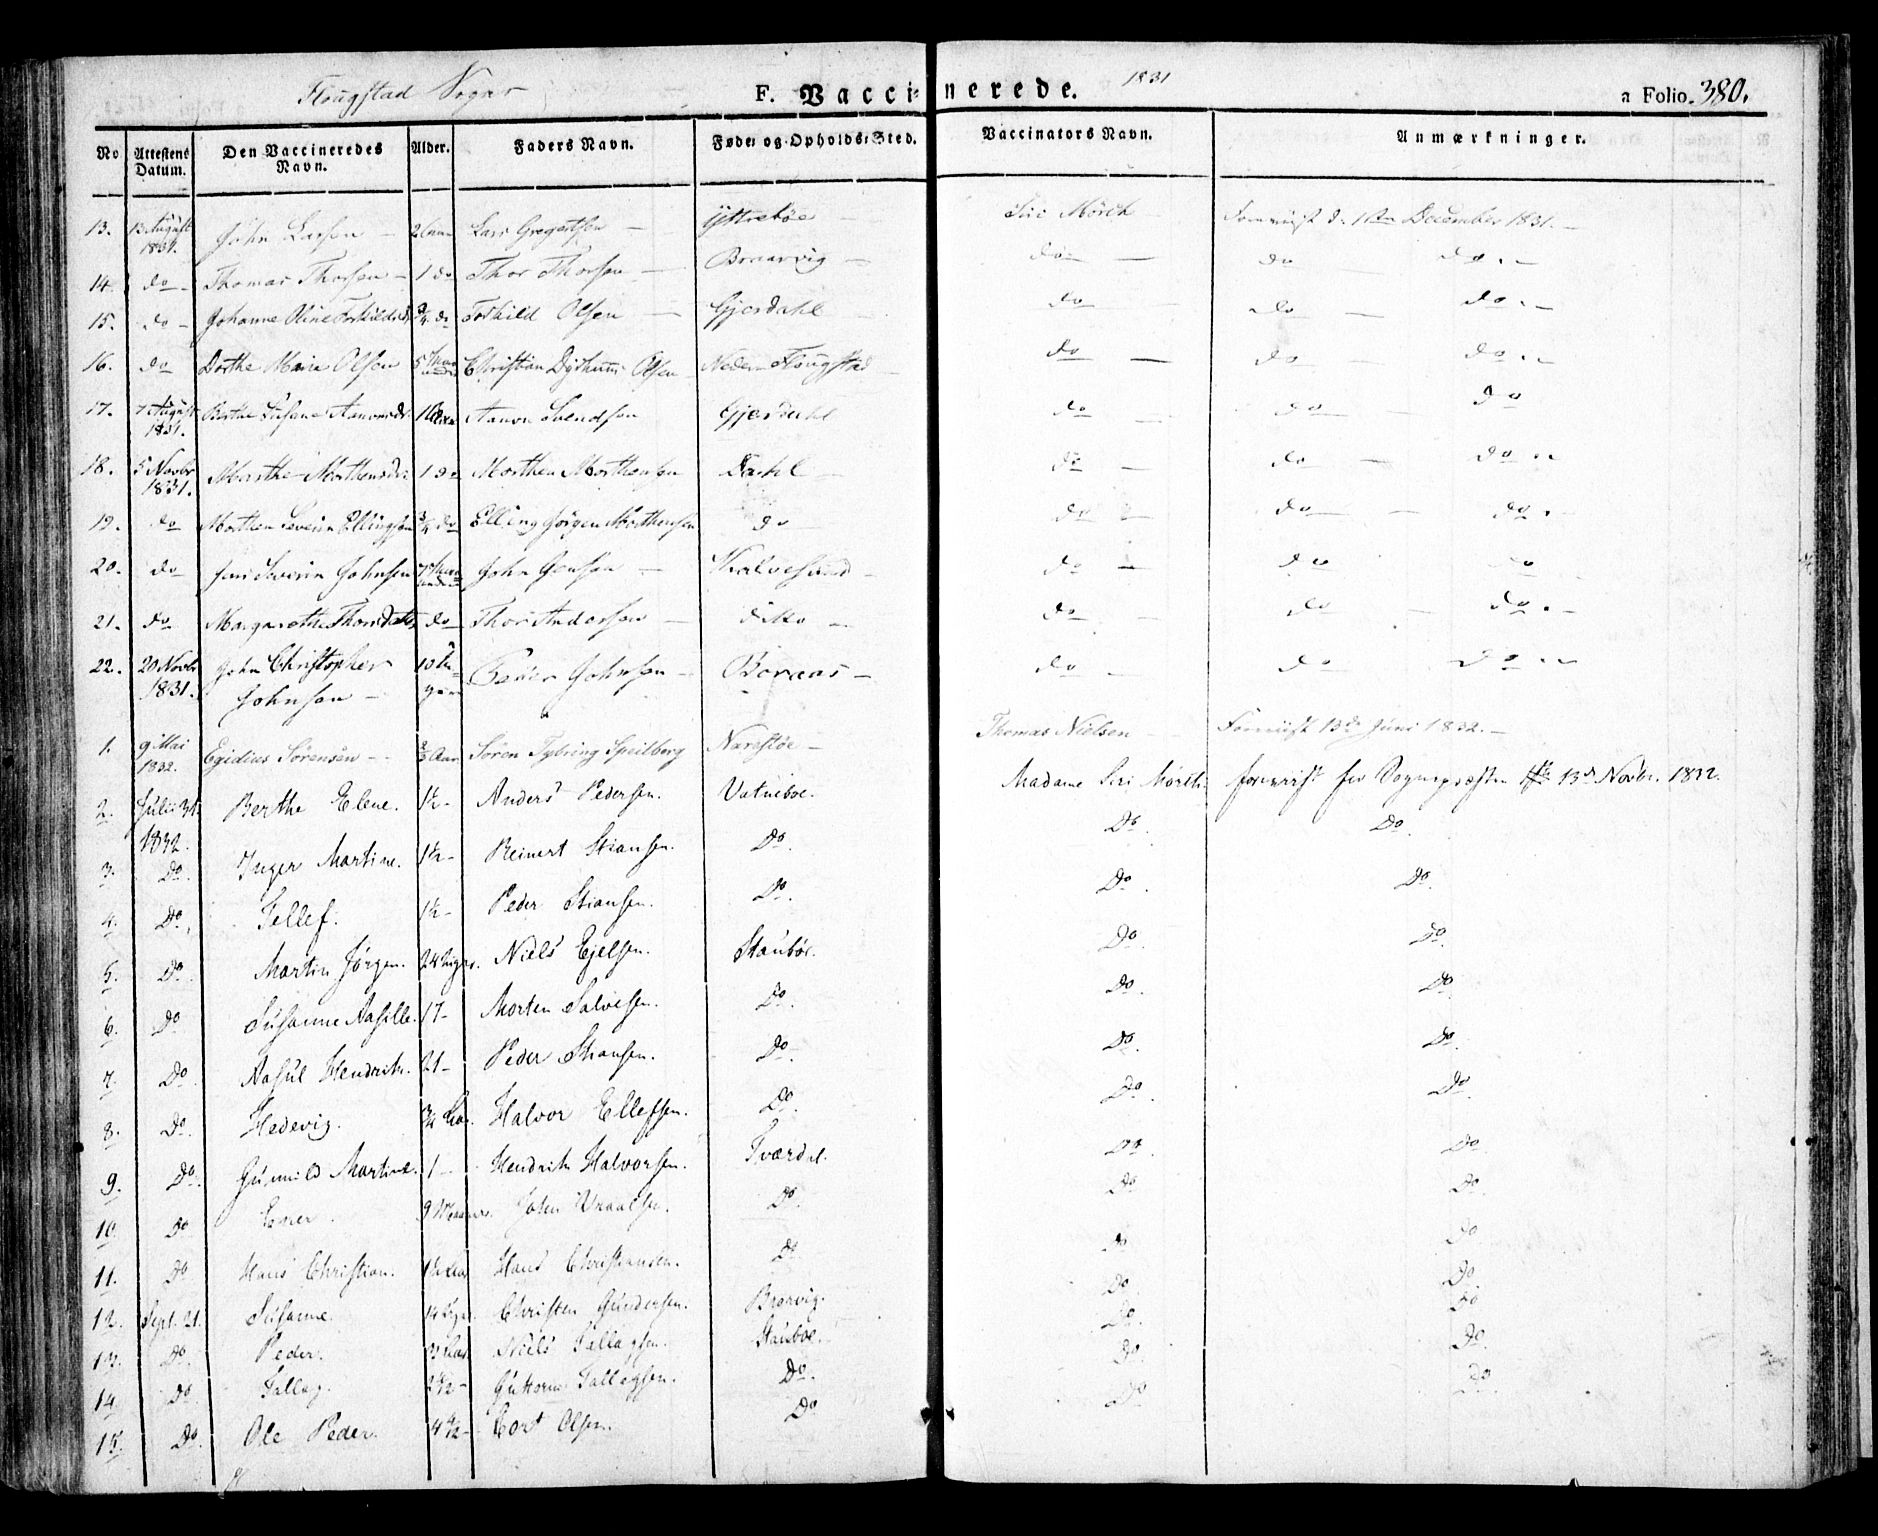 Flougstad Sogn F. Vaccinerede. 1831 a Folio. 380.
No Attestens Datum. Den Vaccineredes Navn. Alder. Faders Navn. Føde- og Opholds-Sted. Vaccinators Navn. Anmærkninger.
13. 13 August 1831. John Larsen – 2 Aar Lars Gregertsen – Yttrebøe – Siri Mörch Foreviist d. December 1831. –
14. do – Thomas Thorsen – 1 do Thor Thorsen – Braarvig – do – do – do. –
15. do – Johanne Oline 3/4 do Torkild Olsen – Gjerdahl do – do – do. –
16. do Dorthe Marie Olsen 5 Christian Olsen Neder Flougstad do – do – do. –
17. 7 August 1831. Berthe Susane 1 Aamon Svendsen Gjerdahl do – do – do
18. 5 Novbr 1831. Marthe Morthensdr. 1 do Morthen Morthensen Dahl – do – do – do. –
19. do Morthen Severin Ellingsen 3/4 do Elling Jörgen Morthensen do do – do – do. –
20. do Jens Severin Johnsen 7 John Jensen – Kalvesund – do – do do
21. do Margarethe Thorsdatter do Thor Andersen – ditto – do – do – do. –
22. 20 Novbr 1831. John Christopher Johnsen – 10 Peder Johnsen – Boraas – do – do do. –
1. 9 Mai 1832. Egidius Sörensen – 2/3 Aar Sören Tybring Speilberg Narestöe – Thomas Nielsen Foreviist 13de Juni 1832. –
2. Julii 31. 1832. Berthe Elene. 1½ – Anders Pedersen. Vatneboe. Madame Siri Mörch. foreviist for Sognepræsten 13de Novbr. 1832.
3. Do. Inger Martine. 1½ – Reinert Stiansen. Do. Do. Do.
4. Do. Tellef. 1½ – Peder Stiansen. Do. Do. Do.
5. Do. Martin Jörgen. 24 Uger. Niels Ejelsen. Stauböe. Do. Do.
6. Do Susanne Aasille. 17 – Morten Salvesen. Do. Do. Do.
7. Do. Aasül Hendrik. 21 – Peder Stiansen. Do. Do. Do.
8. Do. Hedevig. 3/4 Aar. Halvor Ellefsen. Do. Do. Do.
9. Do. Gunnild Martine. 1 – Hendrik Halvorsen. Tværdal. Do. Do
10. Do 9 John Vraalsen. Do. Do Do.
11. Do Hans Christian. 1½ Aar Hans Christiansen. Do. Do Do
12. Sept. 21. Susanne. 14 Uger. Christen Gundersen. Brarvig. Do. Do.
13. Do. Peder. Aar. Niels Tallagsen. Stauboe. Do. Do
14. Do Tallag. 2½ – Guttorm Tallagsen. Do. Do. Do.
15. Do. Ole Peder. 4½ – Cort Olsen. Do Do Do.